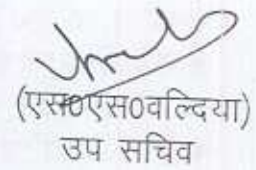 (एस0एस0वल्दिया)
उप सचिव